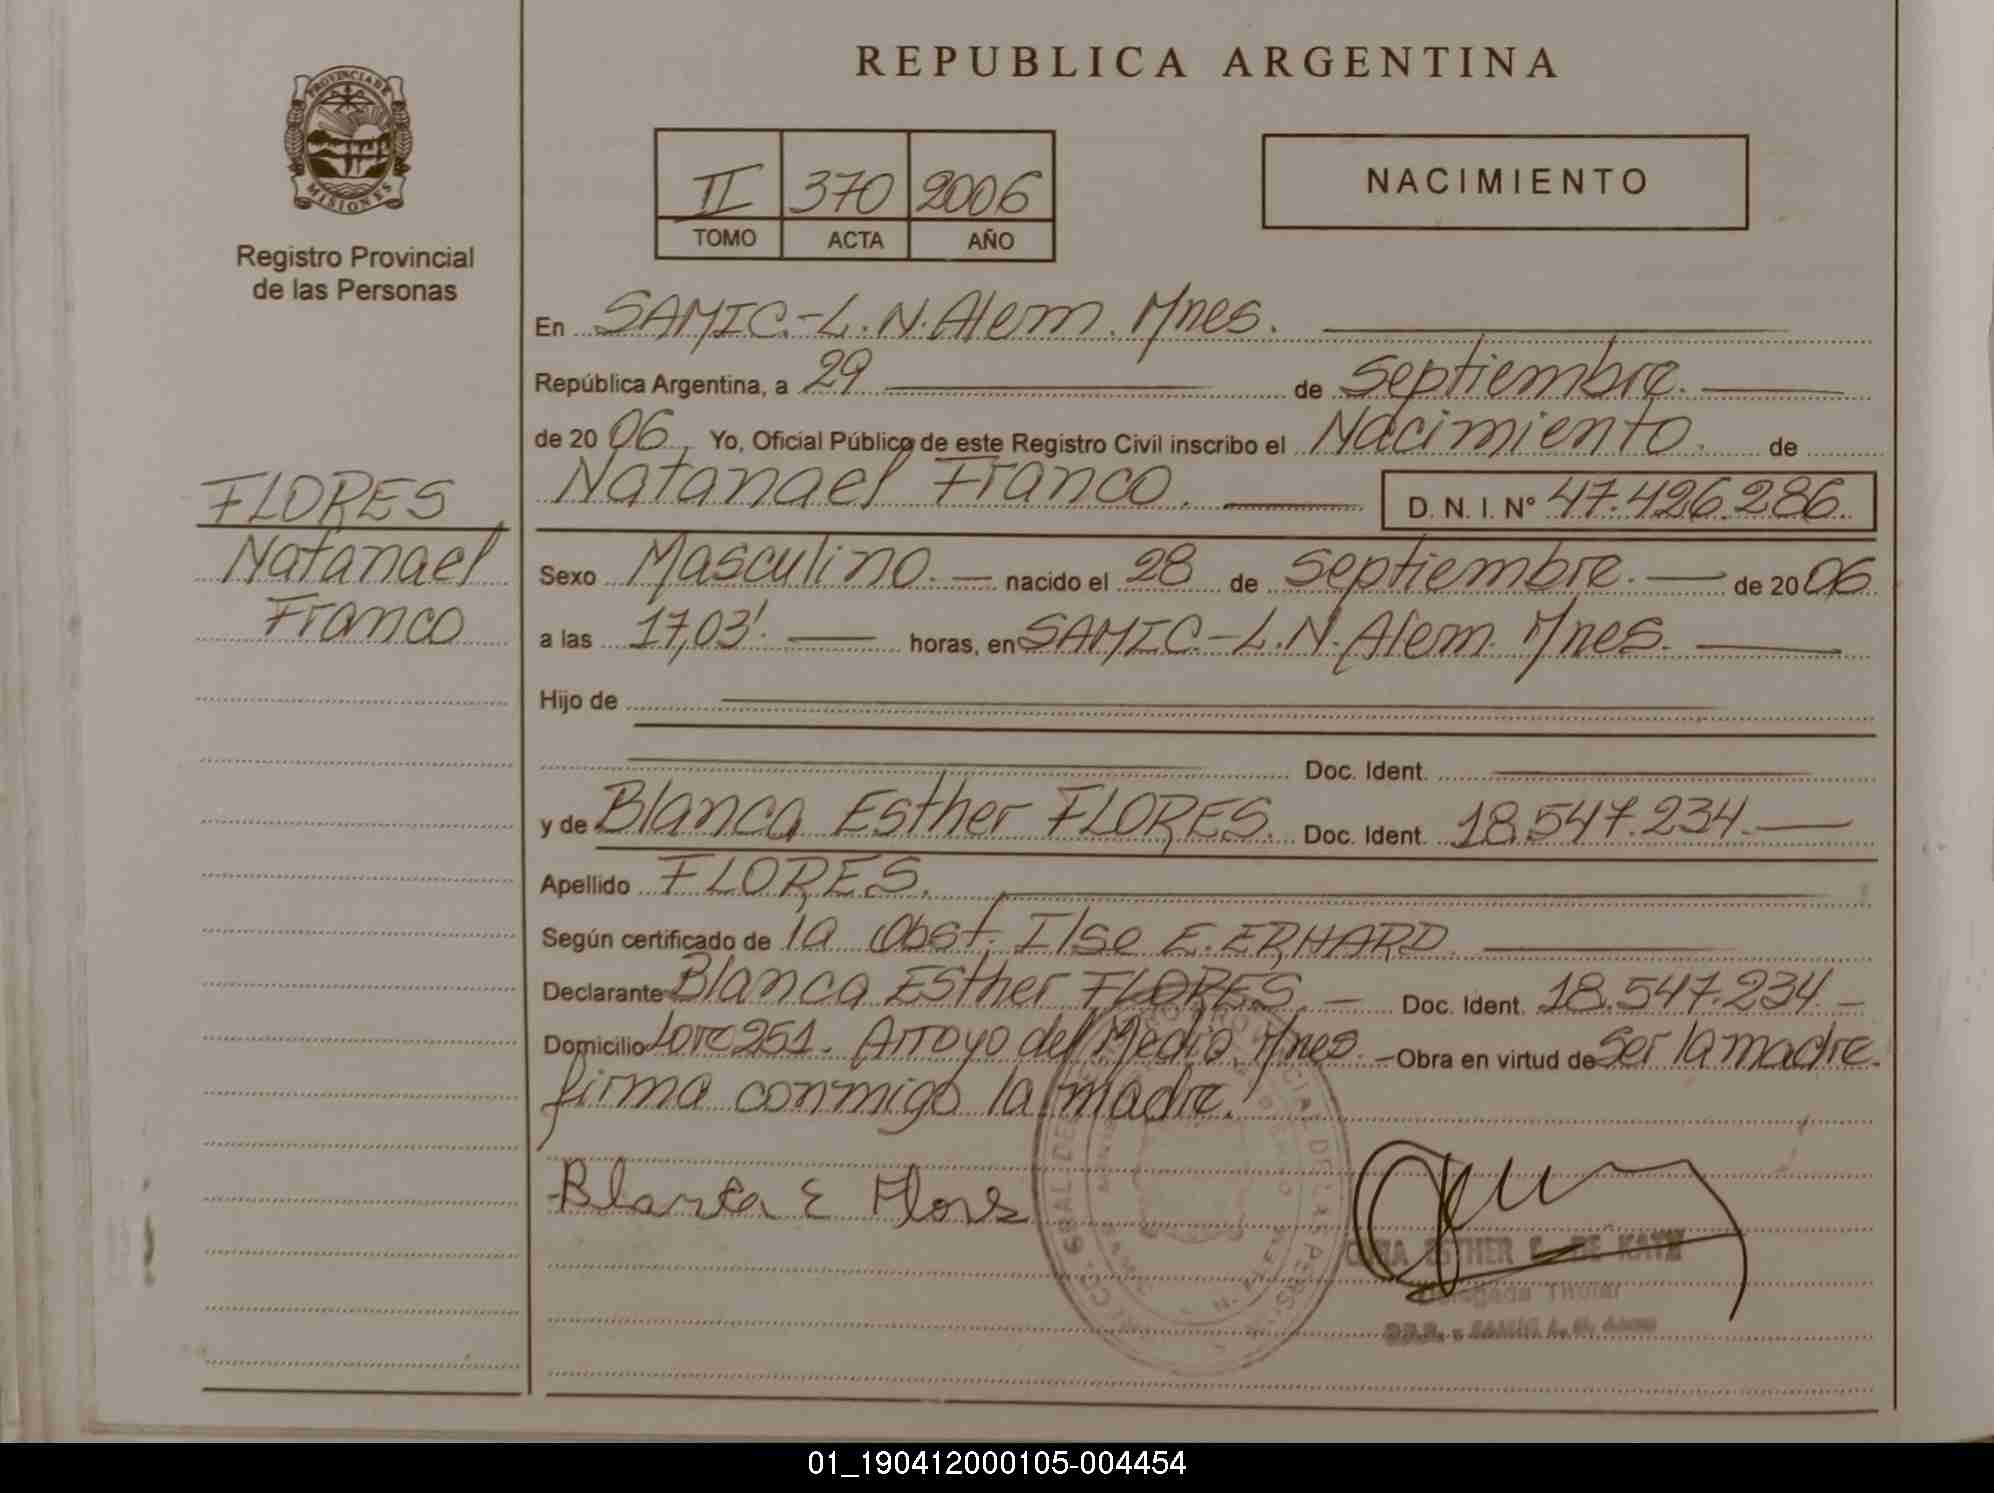 REPUBLICA ARGENTINA
PROVINCIA DE
MISIONES
Registro Provincial
de las Personas
II 370 2006
TOMO ACTA AÑO
NACIMIENTO
En SAMIC.-L.N.Alem. Mnes.
República Argentina, a 29 de Septiembre.
de 20 06. Yo, Oficial Público de este Registro Civil inscribo el Nacimiento. de
Natanael Franco. D. N. I. Nº 47.426.286.
FLORES
Natanael
Franco
Sexo Masculino. nacido el 28 de Septiembre. de 20 06
a las 17,03'. horas, en SAMIC.-L.N.Alem. Mnes.
Hijo de
Doc. Ident.
y de Blanca Esther FLORES. Doc. Ident. 18.547.234.
Apellido FLORES.
Según certificado de la Obst. Ilse E. ERHARD.
Declarante Blanca Esther FLORES. Doc. Ident. 18.547.234.
Domicilio Lote 251. Arroyo del Medio. Mnes. Obra en virtud de Ser la madre.
firma conmigo la madre.
Blanca E Flores
ESTHER DE
Delegada Titular
01_190412000105-004454